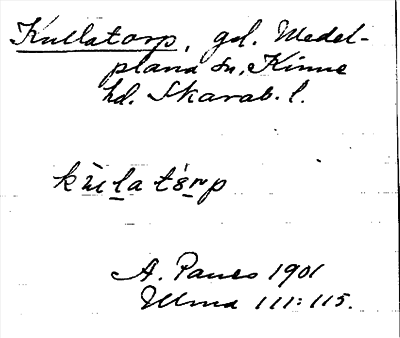 Kullatorp, gd. Medel-
plana sn, Kinne
hd. Skarab. l.
A. Panes 1901
Ulma 111:115.